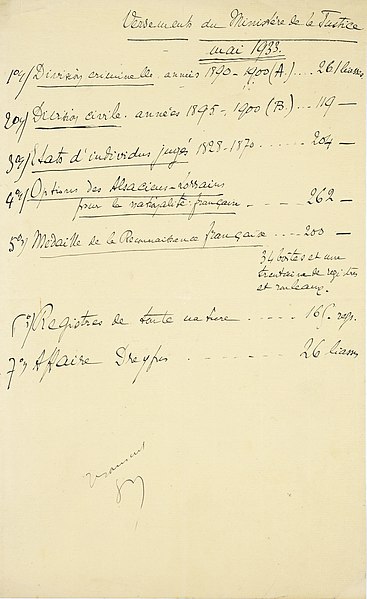 Versements du Ministère de la Justice
mai 1933.
1o/ Division criminelle années 1890-1900 (A.) ... 261 liasses
2o/ Division civile. années 1895-1900 (B.) .. 119 —
3o/ Etats d'individus jugés 1828-1870 ....... 204 —
4o/ Options des Alsaciens-Lorrains
pour la nationalité française - . - . - 262 —
5o/ Médaille de la Reconnaissance française .... 200 —
34 boîtes et une
trentaine de registres
et rouleaux.
6o/ Registres de toute nature . - . - . . 165. reg.
7o/ Affaire Dreyfus - . - - - - - 26 liasses